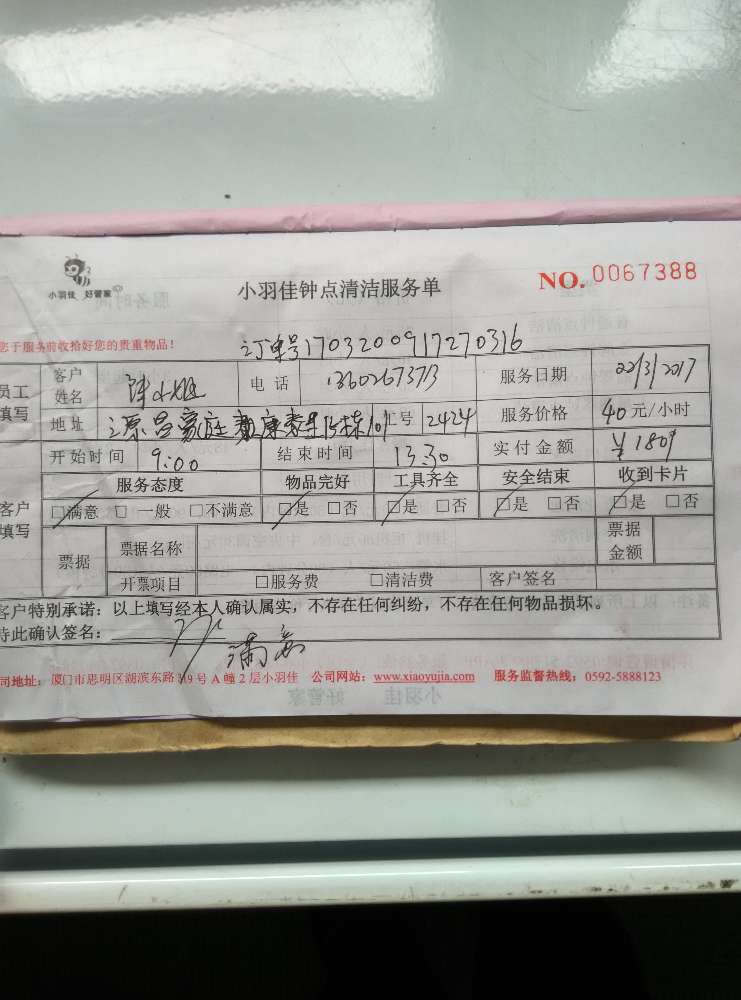 小羽佳 好管家
小羽佳钟点清洁服务单
NO. 0067388
您于服务前收拾好您的贵重物品！
订单号1703200917270316
员工填写 客户姓名 陈小姐 电话 13602673713 服务日期 22/3/2017
地址 源昌豪庭 15栋 工号 2424 服务价格 40元/小时
开始时间 9:00 结束时间 13:30 实付金额 ¥180
服务态度 物品完好 工具齐全 安全结束 收到卡片
客户填写 □满意 □一般 □不满意 □是 □否 □是 □否 □是 □否 □是 □否
票据 票据名称 票据金额
开票项目 □服务费 □清洁费 客户签名
客户特别承诺：以上填写经本人确认属实，不存在任何纠纷，不存在任何物品损坏。
特此确认签名：
满意
司地址：厦门市思明区湖滨东路319号A幢2层小羽佳 公司网站：www.xiaoyujia.com 服务监督热线：0592-5888123